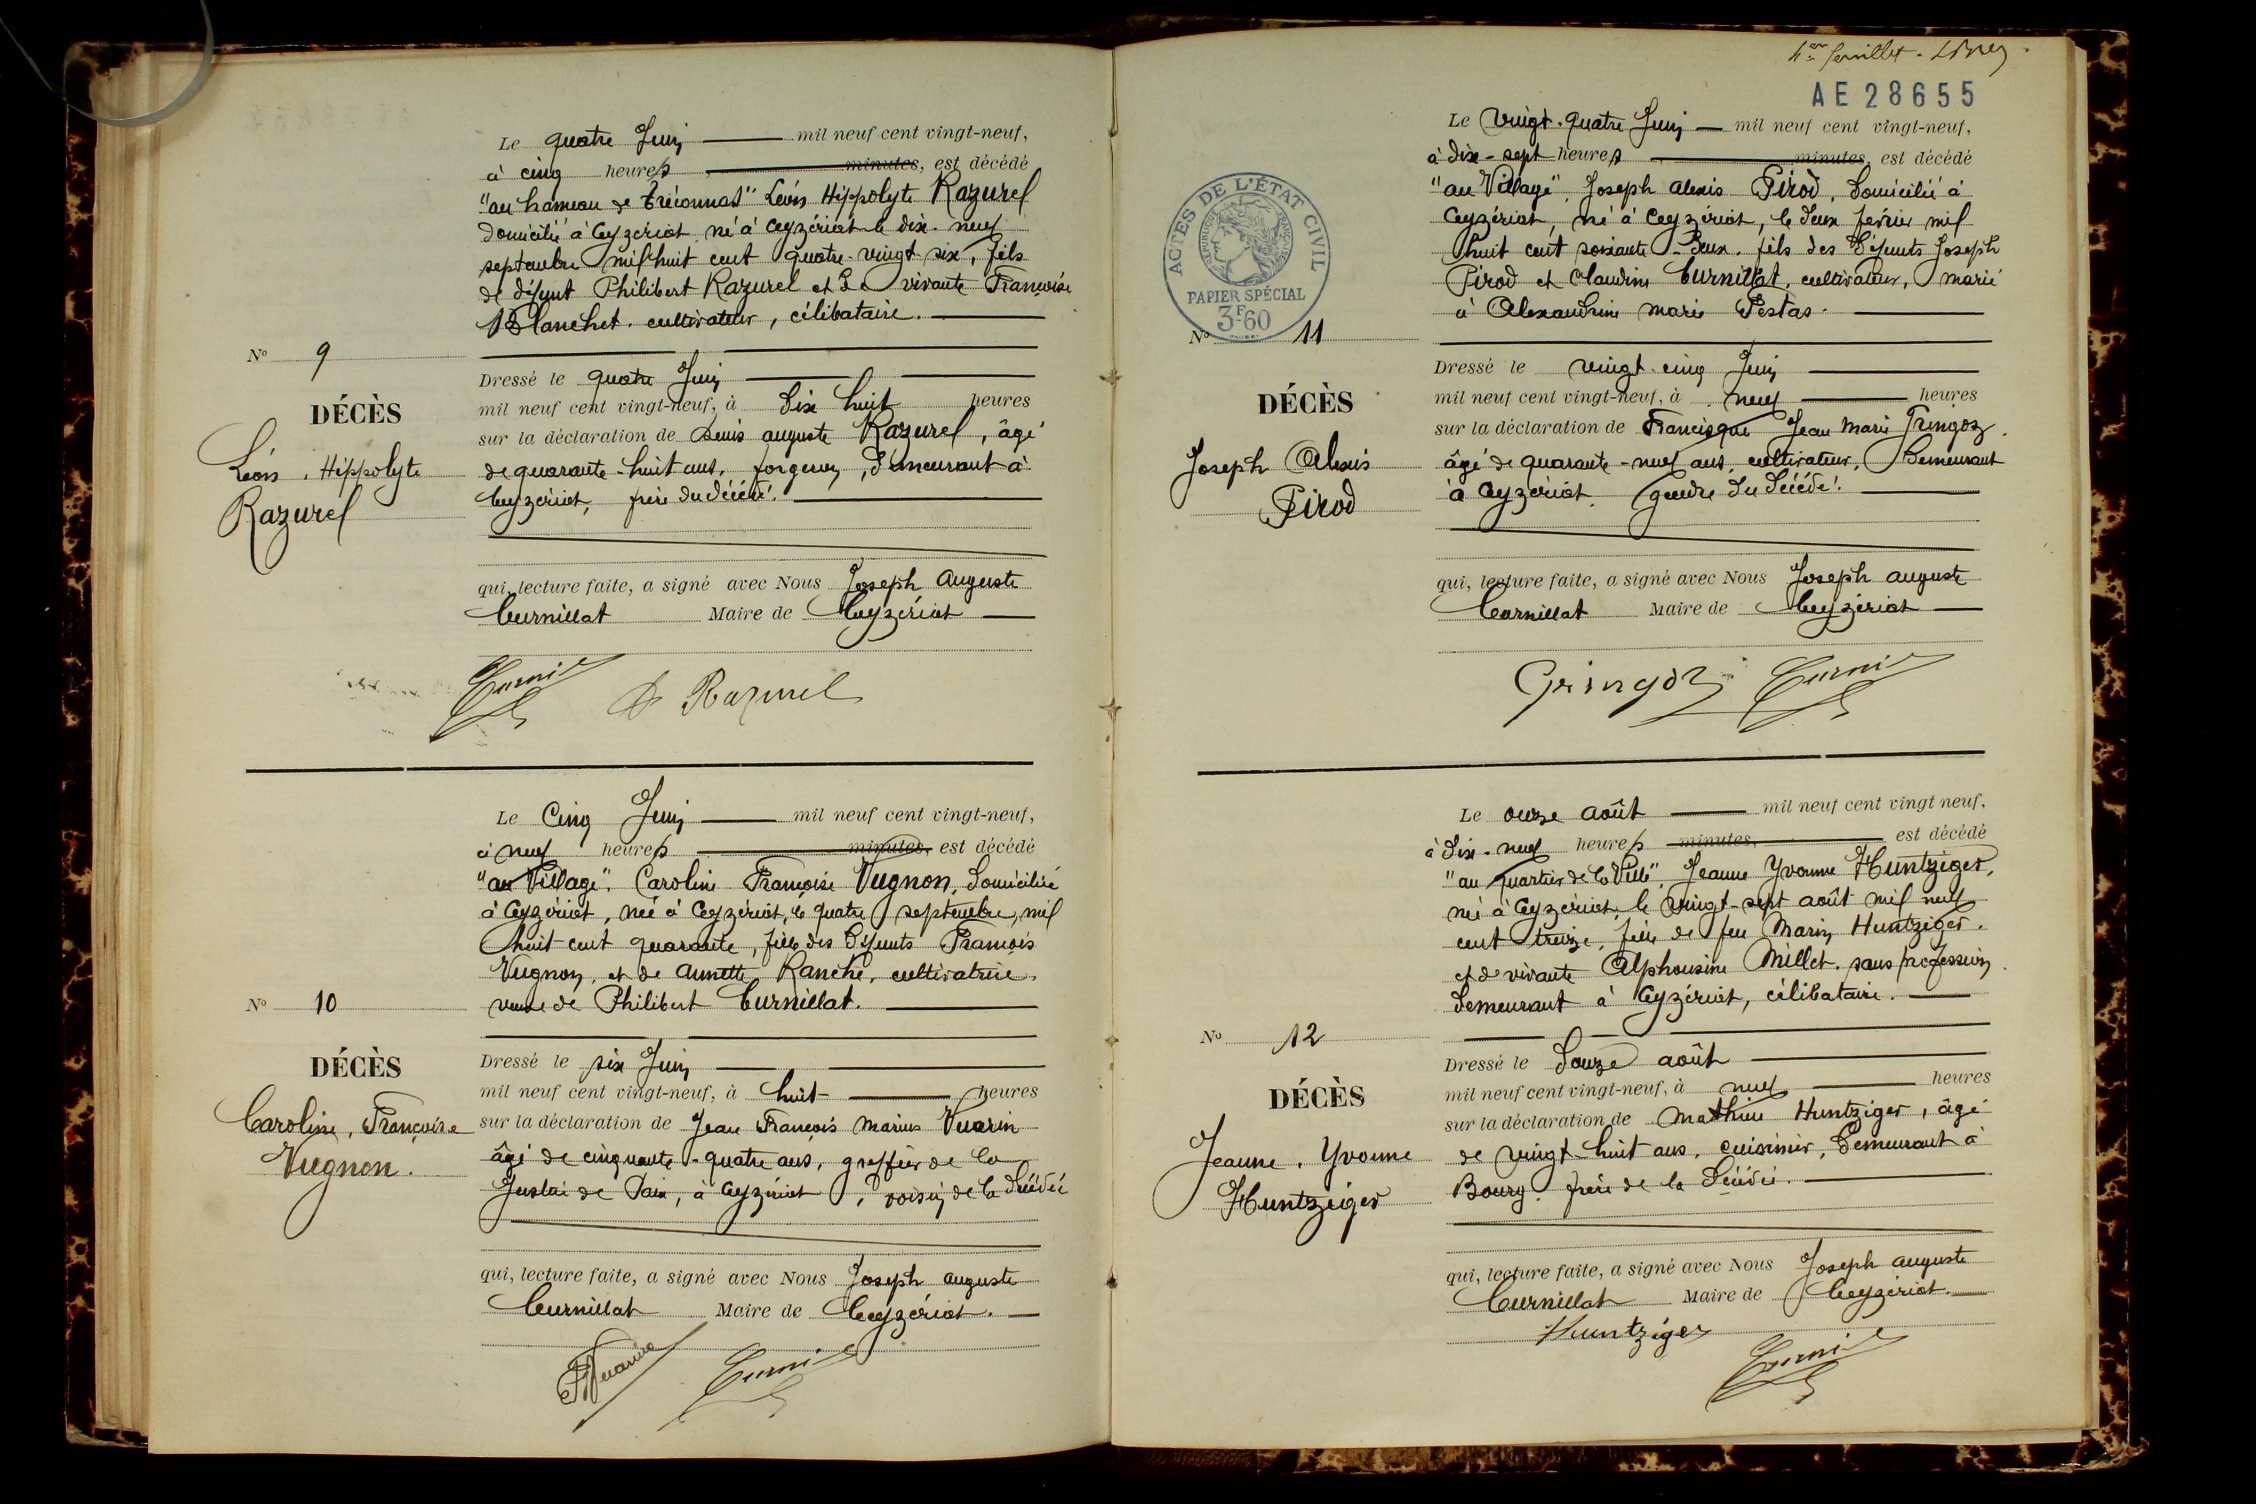 Le quatre Juin mil neuf cent vingt-neuf,
à cinq heures minutes, est décédé
"au hameau de Tréconnas" Léon Hippolyte Razurel
domicilié à Ceyzériat né à Ceyzériat le dix-neuf
septembre mil huit cent quatre-vingt six, fils
de défunt Philibert Razurel et de vivante Françoise
Blanchet. cultivateur, célibataire.
N° 9
DÉCÈS
Léon, Hippolyte
Razurel
Dressé le quatre Juin
mil neuf cent vingt-neuf, à dix huit heures
sur la déclaration de Denis auguste Razurel, âgé
de quarante-huit ans, forgeron, demeurant à
Ceyzériat, frère du décédé.
qui, lecture faite, a signé avec Nous Joseph Auguste
Curnillat Maire de Ceyzériat
D Razurel
Le Cinq Juin mil neuf cent vingt-neuf,
à neuf heures minutes, est décédé
"au Village". Caroline Françoise Vugnon, domiciliée
à Ceyzériat, née à Ceyzériat, le quatre septembre, mil
huit-cent quarante, fille des défunts François
Vugnon, et de Annette Ranche, cultivatrice,
veuve de Philibert Curnillat.
N° 10
DÉCÈS
Caroline, Françoise
Vugnon.
Dressé le six Juin
mil neuf cent vingt-neuf, à huit heures
sur la déclaration de Jean François Marius Vuarin
âgé de cinquante-quatre ans, greffier de la
Justice de Paix, à Ceyzériat, voisin de la décédée
qui, lecture faite, a signé avec Nous Joseph auguste
Curnillat Maire de Ceyzériat.
Vuarin
feuillet
AE 28655
Le Vingt-quatre Juin mil neuf cent vingt-neuf,
à dix-sept heures minutes, est décédé
"au Village", Joseph Alexis Pirod, domicilié à
Ceyzériat, né à Ceyzériat, le deux février mil
huit cent soixante-deux. fils des défunts Joseph
Pirod et Claudine Curnillat, cultivateur, marié
à Alexandrine Marie Pestas.
ACTES DE L'ÉTAT CIVIL
RÉPUBLIQUE FRANÇAISE
PAPIER SPÉCIAL
3F60
N° 11
DÉCÈS
Joseph Alexis
Pirod
Dressé le vingt-cinq Juin
mil neuf cent vingt-neuf, à neuf heures
sur la déclaration de Francisque Jean Marie Gringoz,
âgé de quarante-neuf ans, cultivateur, demeurant
à Ceyzériat, gendre du décédé.
qui, lecture faite, a signé avec Nous Joseph auguste
Curnillat Maire de Ceyzériat
Gringoz
Le onze août mil neuf cent vingt neuf,
à dix-neuf heures minutes, est décédé
"au quartier de la Ville", Jeanne Yvonne Huntziger,
née à Ceyzériat, le vingt-sept août mil neuf
cent treize, fille de feu Marin Huntziger.
et de vivante Alphonsine Millet. sans profession,
demeurant à Ceyzériat, célibataire.
N° 12
DÉCÈS
Jeanne, Yvonne
Huntziger
Dressé le Douze août
mil neuf cent vingt-neuf, à neuf heures
sur la déclaration de Mathieu Huntziger, âgé
de vingt-huit ans, cuisinier, demeurant à
Bourg, frère de la décédée.
qui, lecture faite, a signé avec Nous Joseph auguste
Curnillat Maire de Ceyzériat.
Huntziger